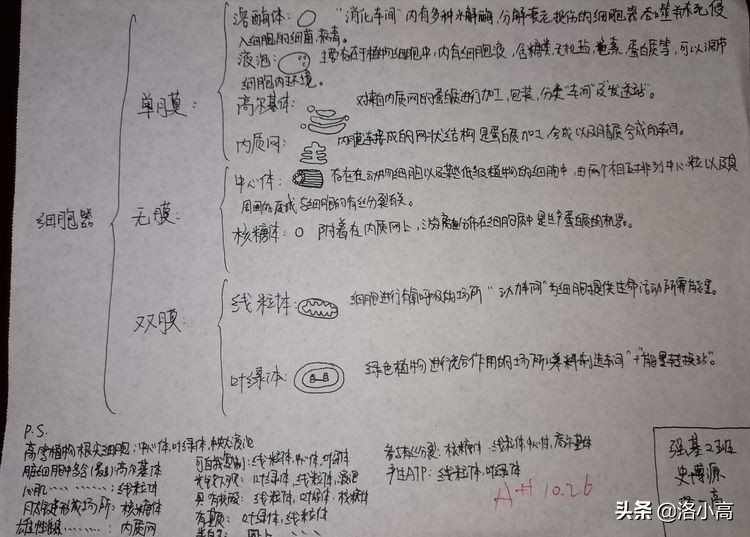 溶酶体: "消化车间"内有多种水解酶,分解衰老损伤的细胞器 吞噬并杀死侵
入细胞的细菌.病毒。
液泡: 主要存在于植物细胞中,内有细胞液,含糖类.无机盐,色素.蛋白质等,可以调节
细胞内环境。
单膜:
高尔基体: 对来自内质网的蛋白质进行加工,包装,分类"车间"及"发送站"。
内质网: 内膜连接成的网状结构 是蛋白质加工,合成以及脂质合成的车间。
中心体: 存在在动物细胞以及某些低级植物的细胞中,由两个相互垂直排列中心粒以及其
周围物质组成 与细胞的有丝分裂有关。
细胞器
无膜:
核糖体: 附着在内质网上,游离分布在细胞质中是生产蛋白质的机器。
线粒体: 细胞进行有氧呼吸的场所 "动力车间"为细胞提供生命活动所需能量。
双膜:
叶绿体: 绿色植物进行光合作用的场所"养料制造车间"+"能量转换站"。
P.S.
高等植物根尖细胞:中心体,叶绿体,
可自我复制:线粒体,中心体,叶绿体
参与 分裂:核糖体 线粒体,中心体,高尔基体
产生ATP:线粒体,叶绿体
心肌 :线粒体
叶绿体,线粒体,液泡
场所:核糖体
线粒体,叶绿体,核糖体
有 :叶绿体,线粒体
:内质网
A++ 10.26
强基2班
史博源
头条 @洛小高